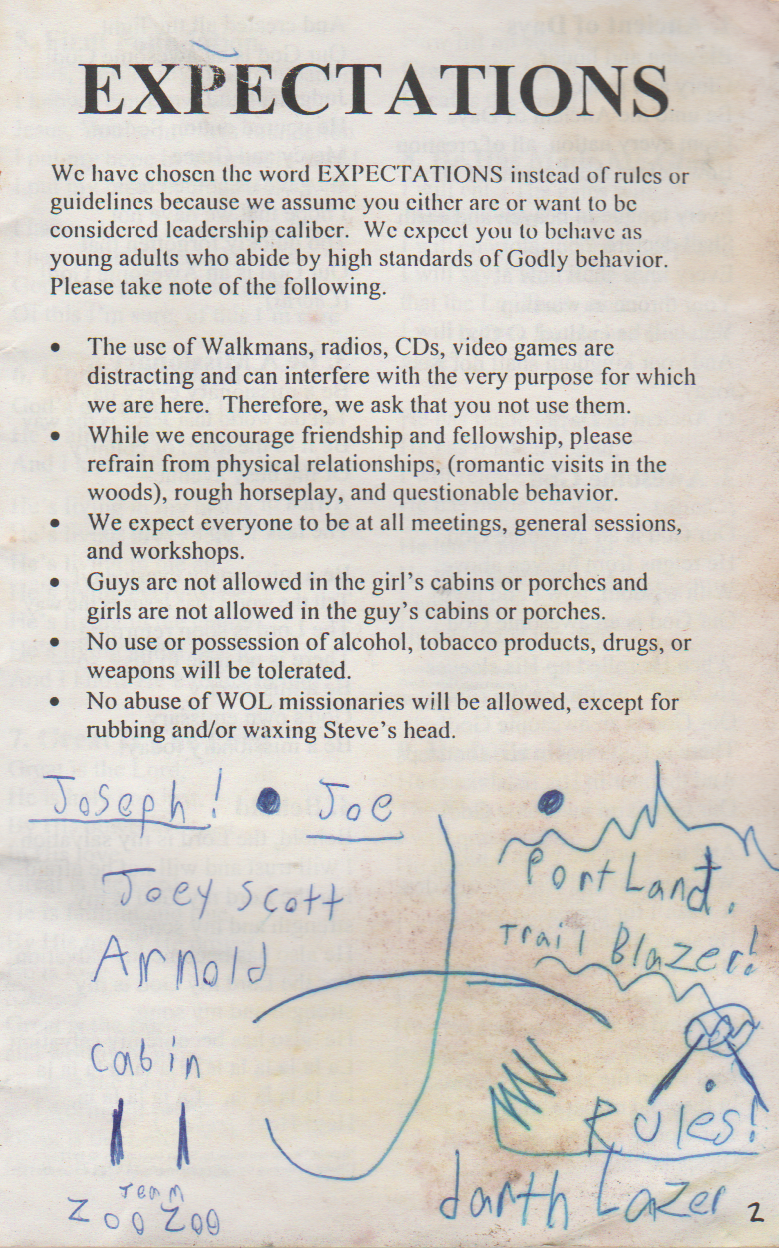 EXPECTATIONS
We have chosen the word EXPECTATIONS instead of rules or
guidelines because we assume you either are or want to be
considered leadership caliber.  We expect you to behave as
young adults who abide by high standards of Godly behavior.
Please take note of the following.
• The use of Walkmans, radios, CDs, video games are
distracting and can interfere with the very purpose for which
we are here.  Therefore, we ask that you not use them.
• While we encourage friendship and fellowship, please
refrain from physical relationships, (romantic visits in the
woods), rough horseplay, and questionable behavior.
• We expect everyone to be at all meetings, general sessions,
and workshops.
• Guys are not allowed in the girl's cabins or porches and
girls are not allowed in the guy's cabins or porches.
• No use or possession of alcohol, tobacco products, drugs, or
weapons will be tolerated.
• No abuse of WOL missionaries will be allowed, except for
rubbing and/or waxing Steve's head.
Joseph! • Joe
Joey Scott
Arnold
Cabin
11
Team
Zoo Zoo
Portland.
Trail Blazer!
Rules!
darth Lazer
2